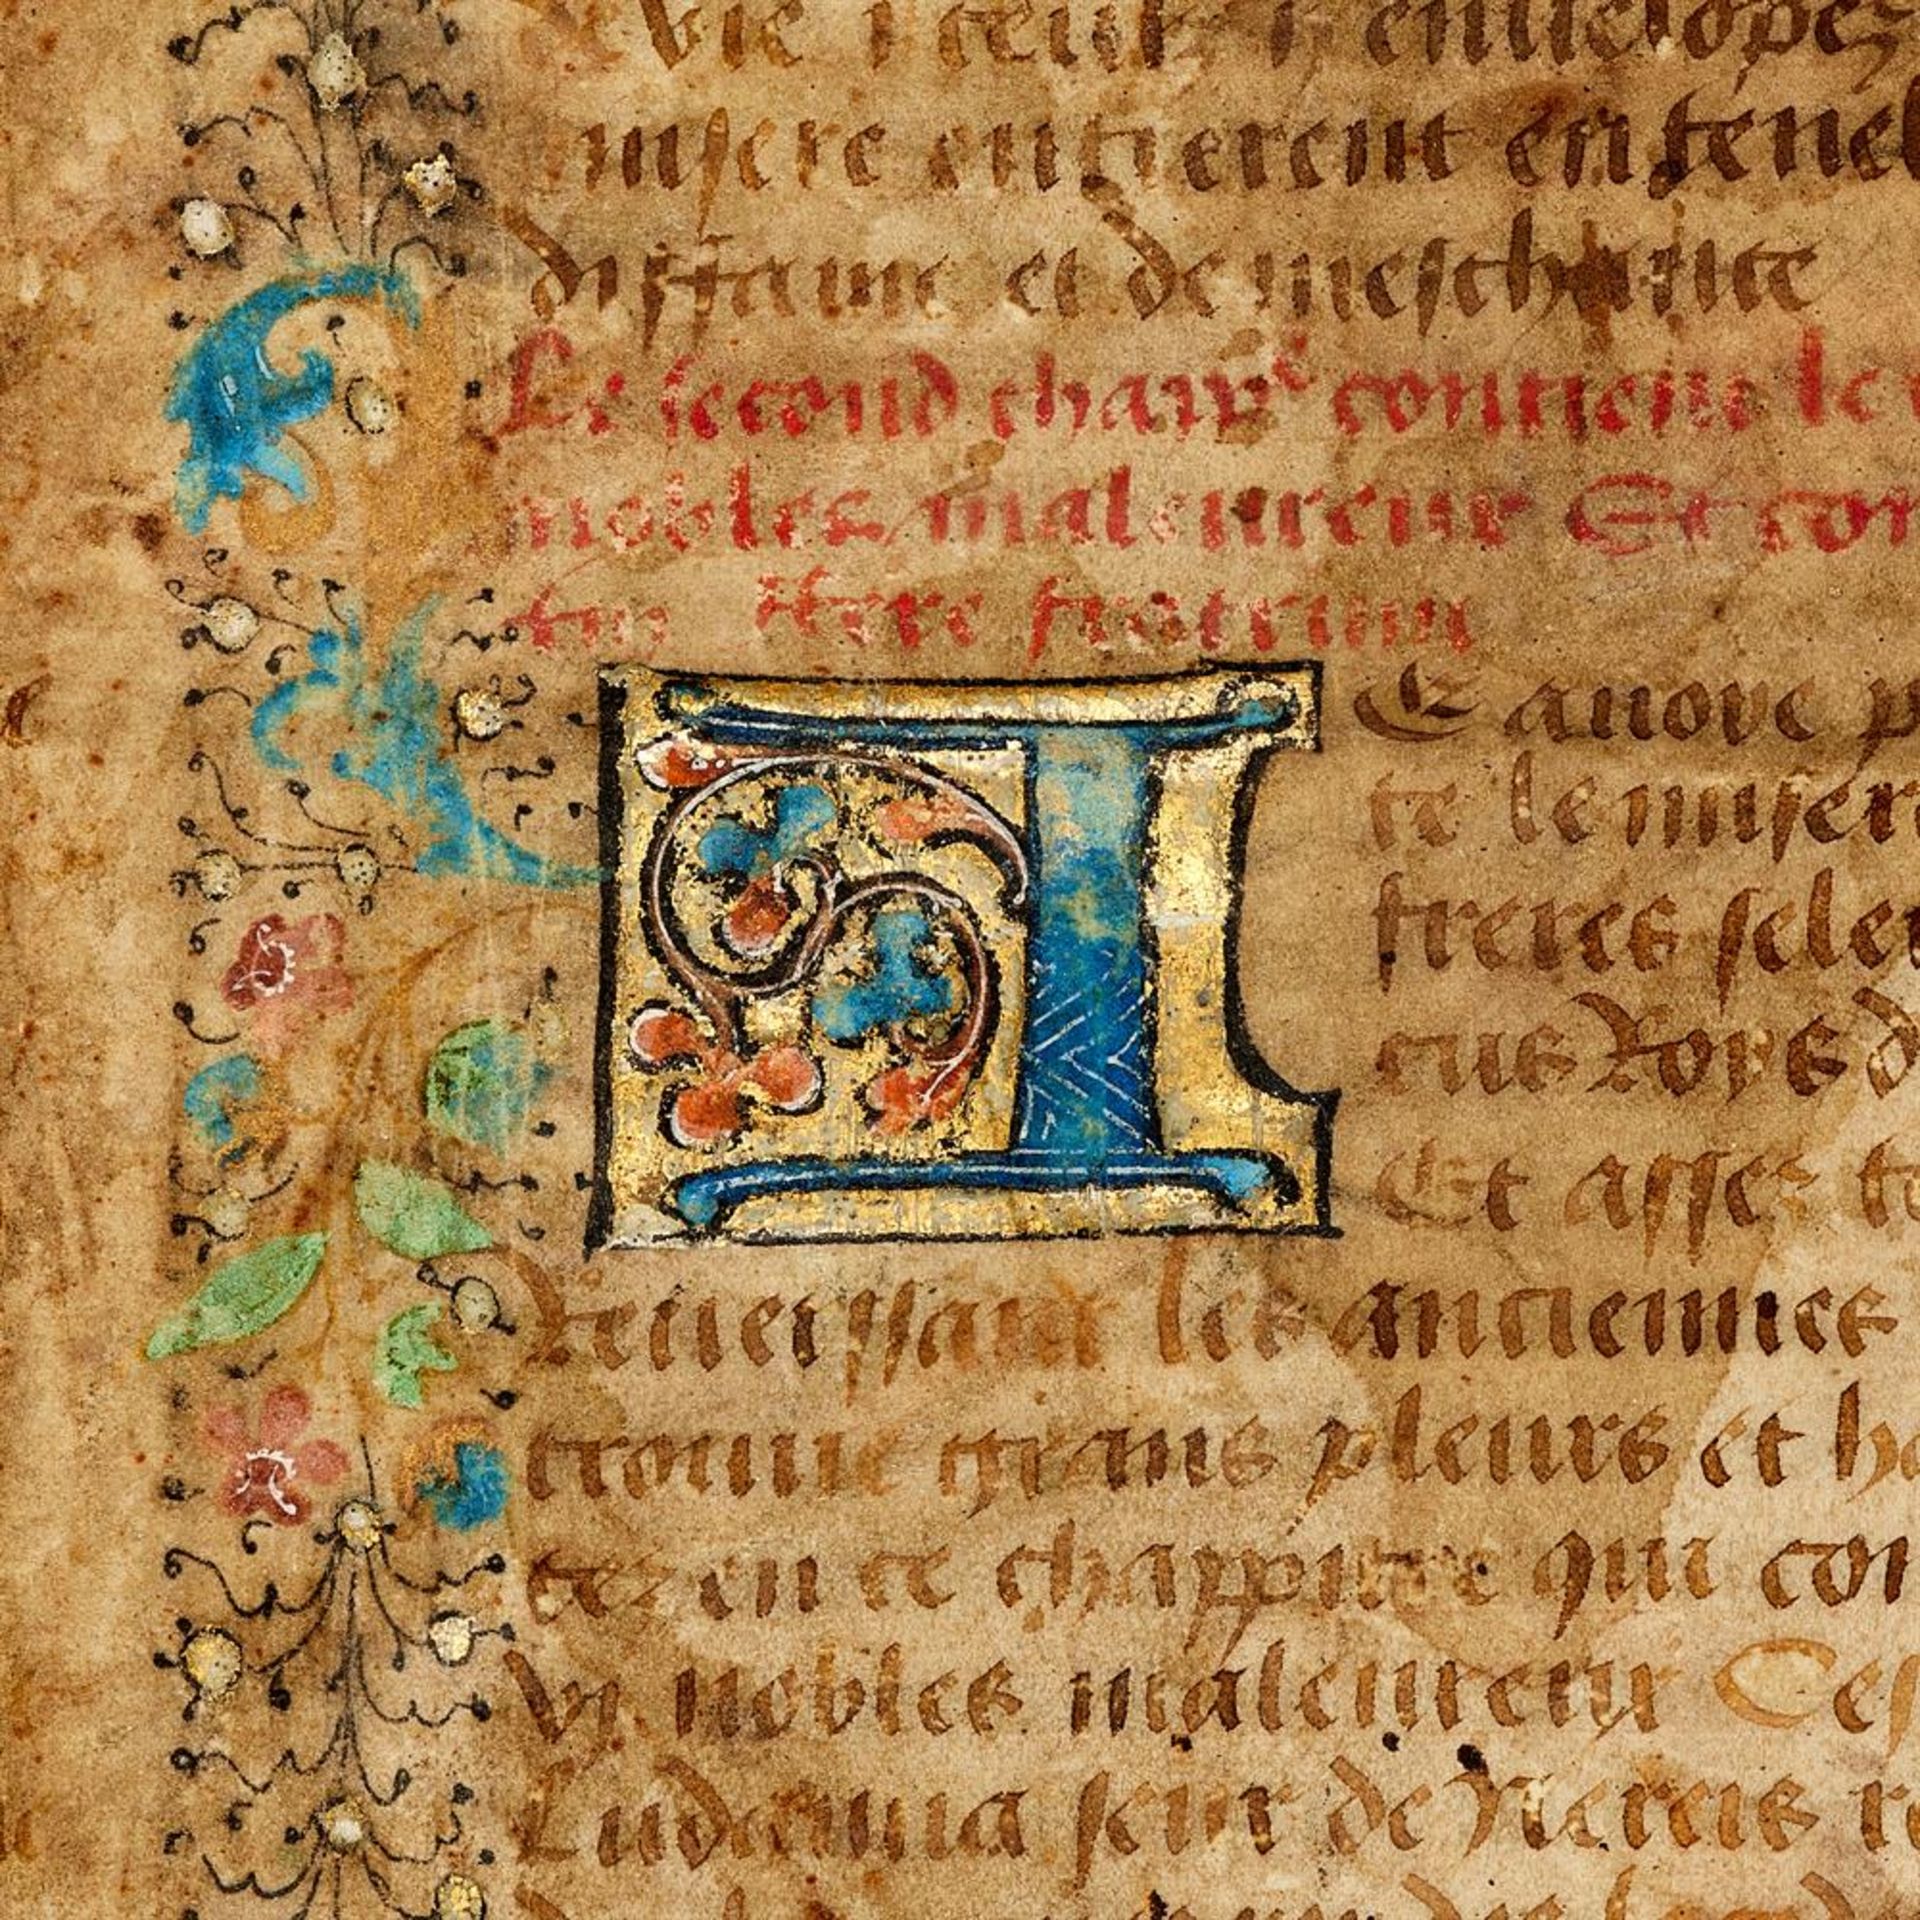 vie ceulx enuelopez
misere entrerent en teneb
diffame et de meschance
Le second chapp^e contient le
nobles maleureux Et com
fratrum
IE auoye p
te le miser
freres seleu
cus Roys d
Et assez to
Reuersant les anciennes
trouue grans pleurs et ha
tez en ce chappitre qui con
vi nobles maleureux Ces
seur de Nereis